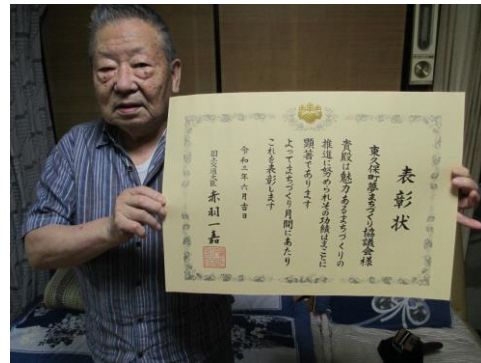 表彰状
東久保町夢まちづくり協議会様
貴殿は魅力あるまちづくりの
推進に努められその功績はまことに
顕著であります
よってまちづくり月間にあたり
これを表彰します
令和二年六月吉日
国土交通大臣 赤羽一嘉